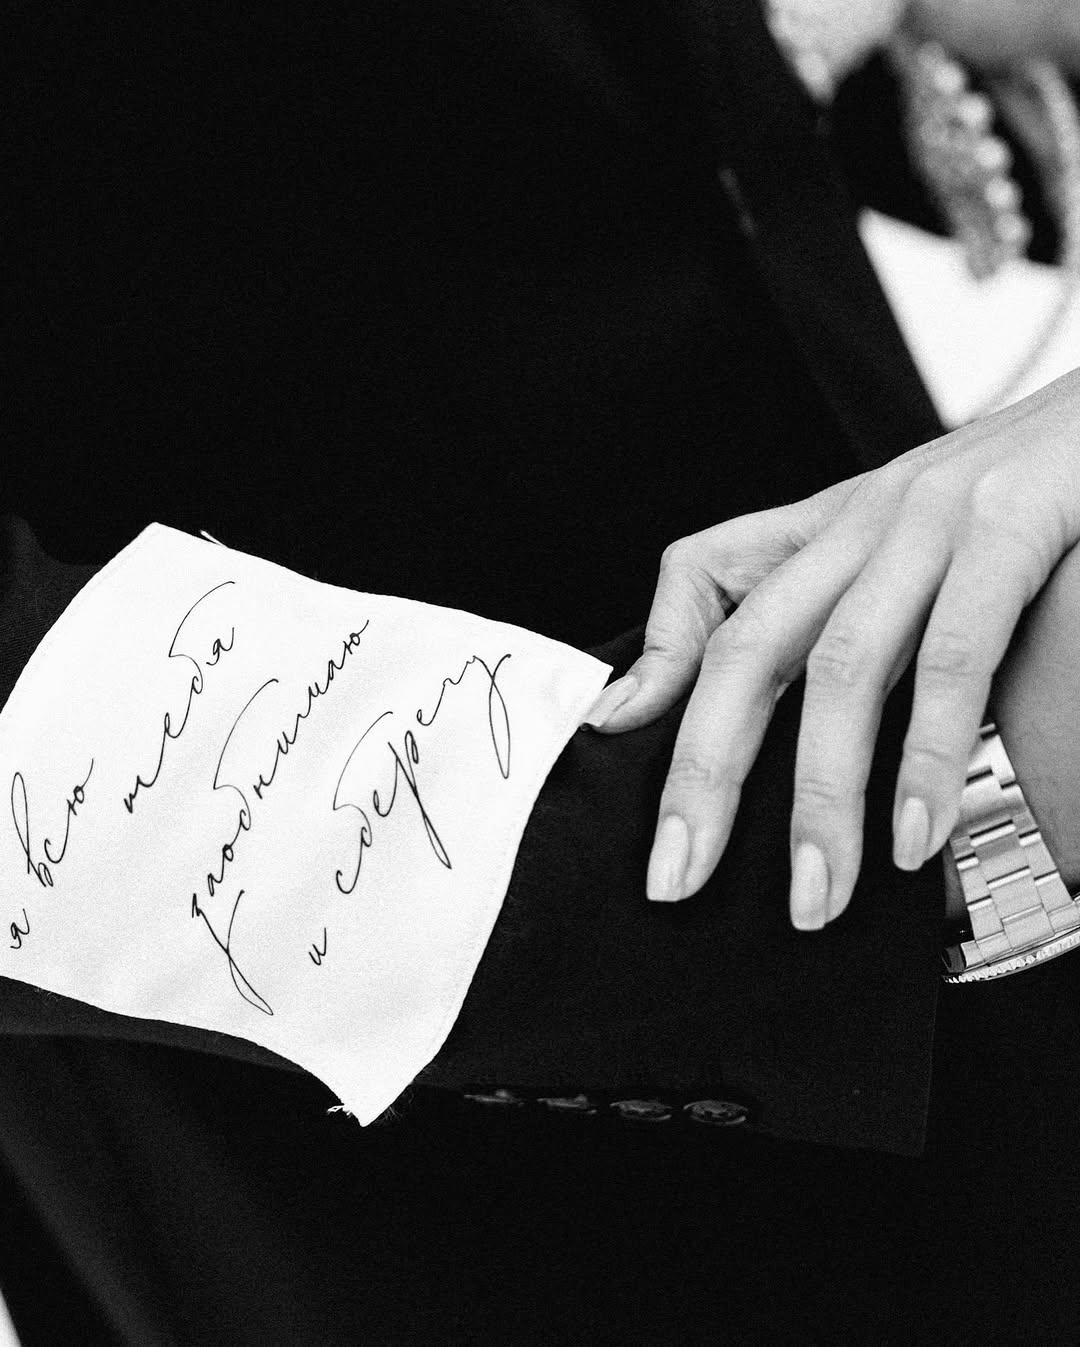 я всю тебя
заобнимаю
и сберегу